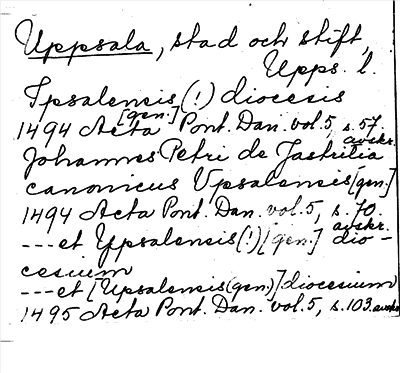 Uppsala, stad och stift,
Upps. l.
Ipsalensis (!) diocesis
[gen.]
1494 Acta Pont. Dan. vol. 5, s. 57.
avskr.
Johannes Petri de Jastrilia
canonicus Upsalensis [gen.]
1494 Acta Pont. Dan. vol. 5, s. 70.
avskr.
--- et Yppsalensis (!) [gen.] dio-
cesium
--- et [Upsalensis (gen.)] diocesium
1495 Acta Pont. Dan. vol. 5, s. 103. avskr.